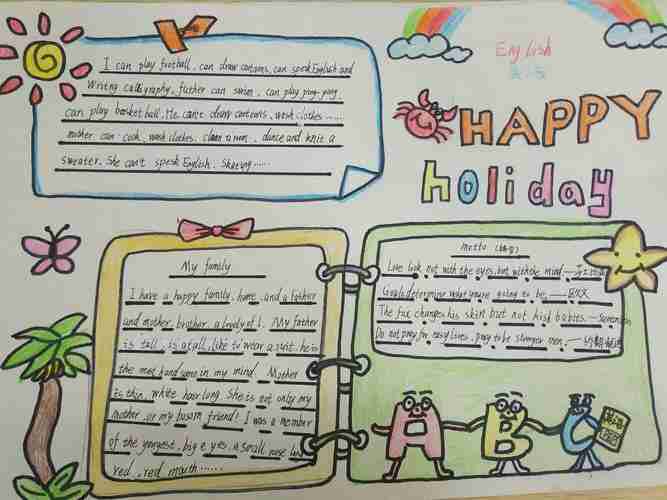 I can play football, can draw cartoons, can speak English and
Writing calligraphy, father can swim, can play ping-pong,
can play basketball. He can't draw cartoons, wash clothes......
mother can cook, wash clothes, clean room, dance and knit a
sweater. She can't speak English. Skating......
English
HAPPY
holiday
My family
I have a happy family, home, and a father
and mother, brother, a lovely of I. My father
is tall, is a tall, like to wear a suit, he is
the most handsome in my mind. Mother
is thin, white hair long. She is not only my
mother, or my bosom friend! I was a member
of the youngest, big eyes, a small nose
red, red mouth......
motto
Love look not with the eyes, but with the mind.
Goals determine what you're going to be.
The fox changes his skin but not his habits.
Do not pray for easy lives, pray to be stronger men.
A
B
C